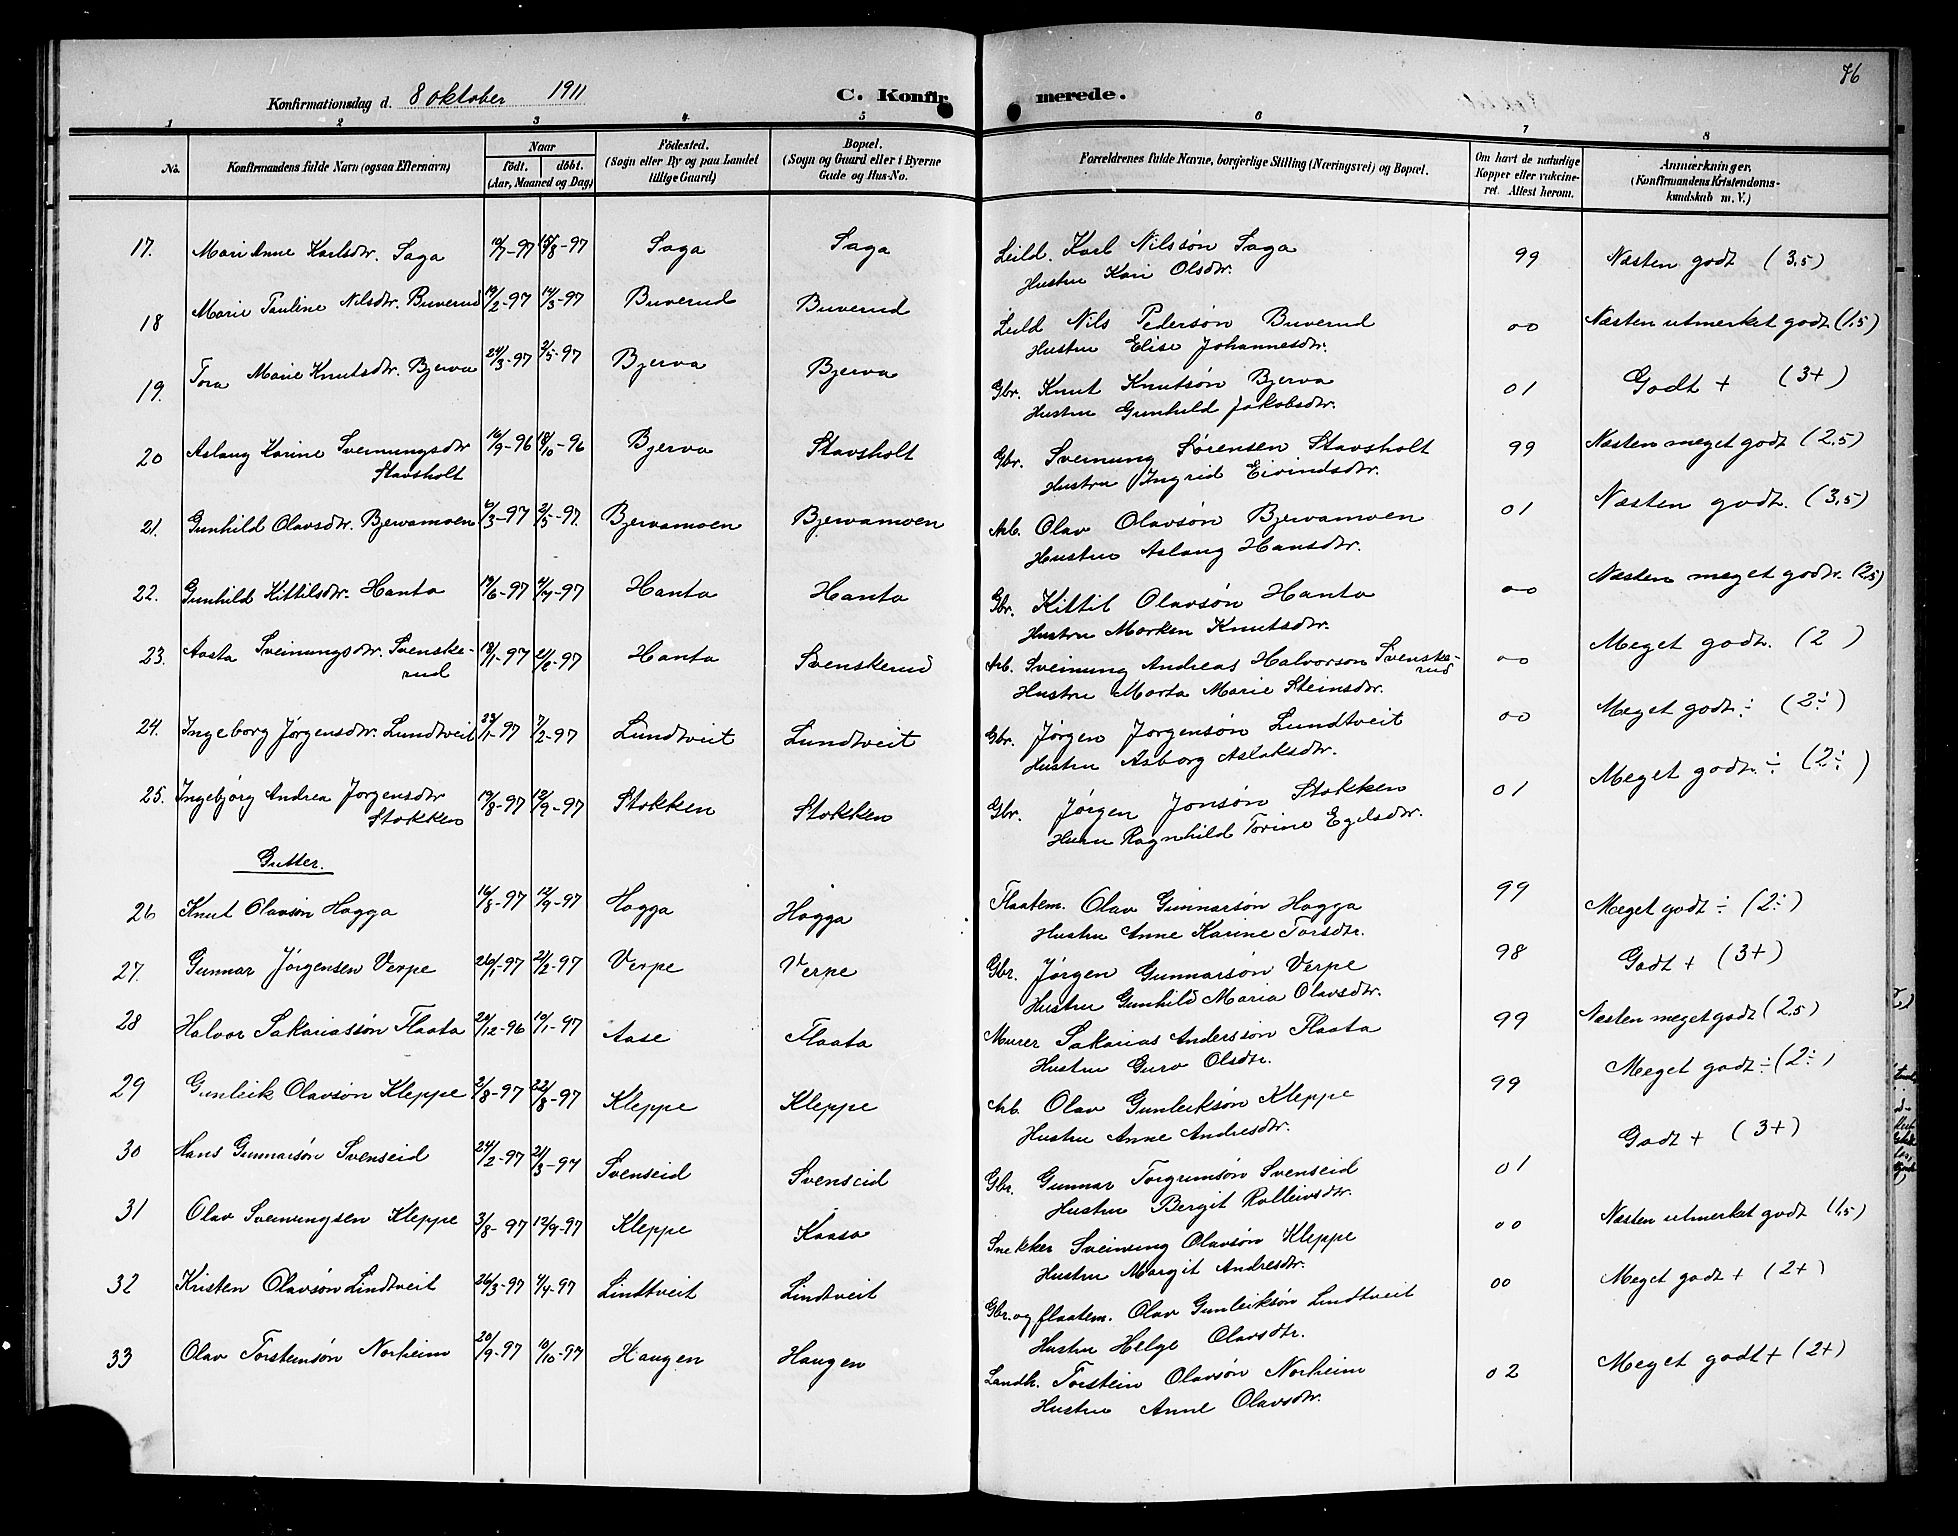 76
Konfirmationsdag d. 8 oktober 1911 C. Konfirmerede.
1 2 3 4 5 6 7 8
No. Konfirmandens fulde Navn (ogsaa Efternavn) Naar født. døbt. (Aar, Maaned og Dag) Fødested. (Sogn eller By og paa Landet tillige Gaard) Bopæl. (Sogn og Gaard eller i Byerne Gade og Hus-No. Forældrenes fulde Navne, borgerlige Stilling (Næringsvei) og Bopæl. Om havt de naturlige Kopper eller vakcineret. Attest herom. Anmærkninger. (Konfirmandens Kristendomskundskab m. V.)
17. Mari Anne Karlsdtr. Saga -97 15/8-97 Saga Saga Leild. Karl Nilssøn Saga 99 Næsten godt (3,5)
Hustru Kari Olsdtr.
18 Marie Pauline Nilsdtr. Buverud 19/2-97 14/3-97 Buverud Buverud Leild Nils Pedersøn Buverud 00 Næsten utmerket godt (1,5)
Hustru Elise Johannesdtr.
19. Tora Marie Knutsdtr. Bjerva 24/3-97 2/5-97 Bjerva Bjerva Gbr. Knut Knutsøn Bjerva 01 Godt + (3+)
Hustru Gunhild Jakobsdtr.
20 Aslaug Karine Sveinungsdtr 16/9-96 18/10-96 Bjerva Stavsholt Gbr. Sveinung Sørensen Stavsholt 99 Næsten meget godt (2,5)
Stavsholt Hustru Ingrid Eivindsdtr.
21. Gunhild Olavsdtr. Bjervamoen 6/3-97 2/5-97. Bjervamoen Bjervamoen Arb. Olav Olavsøn Bjervamoen 01 Næsten godt. (3,5)
Hustru Aslaug Hansdtr.
22. Gunhild Kittilsdtr. Hanto 14/6-97 4/7-97 Hanto Hanto Gbr. Kittil Olavsøn Hanto 00 Næsten meget godt. (2,5)
Hustru Marken Knutsdtr.
23. Aasta Sveinungsdtr. Svenske- 18/1-97 -97 Hanto Svenskerud Arb. Sveinung Andreas Halvorson Svenske- 00 Meget godt. (2 )
rud rud
Hustru Marta Marie Steinsdtr.
24. Ingeborg Jørgensdtr. Lundtveit 23/1-97 7/2-97 Lundtveit Lundtveit Gbr. Jørgen Jørgensøn Lundtveit 00 Meget godt ÷ (2÷)
Hustru Asborg Aslaksdtr.
25. Ingebjørg Andrea Jørgensdtr 19/8-97 12/9-97 Stokken Stokken Gbr. Jørgen Jonsøn Stokken 01 Meget godt ÷ (2÷)
Stokken Husru Ragnhild Torine Egelsdtr.
Gutter.
26 Knut Olavsøn Hogga 16/8-97 12/9-97 Hogga Hogga Flaatem. Olav Gunnarsøn Hogga 99 Meget godt ÷ (2÷)
Hustru Anne Karine Torsdtr.
27. Gunnar Jørgensen Verpe 26/1-97 21/2-97 Verpe Verpe Gbr. Jørgen Gunnarsøn Verpe 98 Godt + (3+)
Hustru Gunhild Maria Olavsdtr.
28 Halvor Sakariassøn Flaata 20/12-96 10/1-97 Aase Flaata Murer Sakarias Anderssøn Flaata 99 Næsten meget godt (2,5)
Hustru Guro Olsdtr.
29 Gunleik Olavsøn Kleppe 2/8-97 22/8-97 Kleppe Kleppe Arb. Olav Gunleiksøn Kleppe 99 Meget godt ÷ (2÷)
Hustru Anne Andresdtr.
30 Hans Gunnarsøn Svenseid 24/2-97 21/3-97 Svenseid Svenseid Gbr. Gunnar Torgrimsøn Svenseid 01 Godt + (3+)
Hustru Bergit Rolleivsdtr.
31 Olav Sveinungsen Kleppe 3/8-97 12/9-97 Kleppe Kaasa Snekker Sveinung Olavsøn Kleppe 00 Næsten utmerket godt (1,5)
Hustru Margit Andresdtr.
32 Kristen Olavsøn Lindtveit 26/3-97 4/4-97 Lindtveit Lindtveit Gbr. og flaatem. Olav Gunleiksøn Lindtveit 00 Meget godt + (2+)
Hustru Helge Olavsdtr.
33 Olav Torsteinsøn Norheim 20/9-97 10/10-97 Haugen Haugen Landh. Torstein Olavsøn Norheim 02 Meget godt + (2+)
Hustru Anne Olavsdtr.